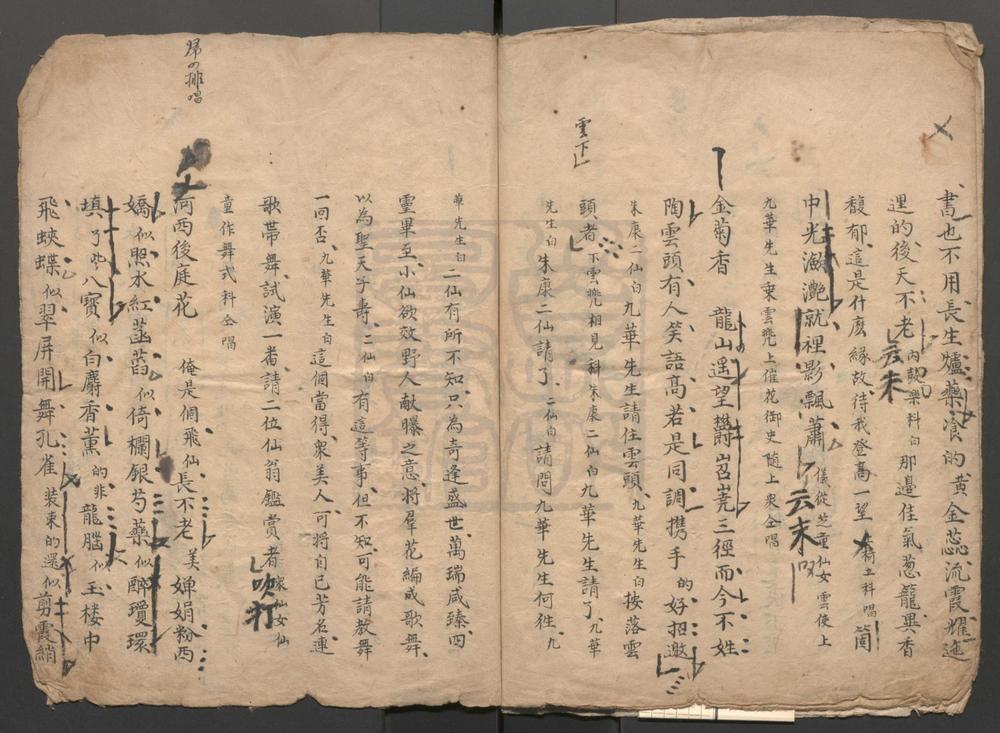 書也不用長生爐藥飡的黃金蕊流霞耀逃
逞的後天不老內鼓樂科白那邊佳氣葱籠異香
云末
馥郁這是什麽緣故待我登高一望科唱箇
中光瀲灧就裡影飄蕭儀從芝童仙女雲使上
云末
九華先生乘雲兠上催花御史随上衆仝唱
金菊香 龍山遥望鬱岧嶤三徑而今不姓
陶雲頭有人笑語髙若是同調携手的好招邀
朱康二仙白九華先生請住雲頭九華先生白按落雲
雲下
頭者下雲兠相見科朱康二仙白九華先生請了九華
先生白朱康二仙請了二仙白請問九華先生何徃九
華先生白二仙有所不知只為奇逢盛世萬瑞咸臻四
靈畢至小仙欲效野人献曝之意將羣花編成歌舞
以為聖天子壽二仙白有這等事但不知可能請教舞
一回否九華先生白這個當得衆美人可將自己芳名連
歌帶舞試演一畨請二位仙翁鑑賞者衆仙女仙
吹打
童作舞式科仝唱
排唱
河西後庭花 俺是個飛仙長不老美嬋娟粉西
嬌似照水紅菡萏似倚欄銀芍藥似醉瓊環
填了些八寳似白麝香熏的非龍腦似玉楼中
飛蛺蝶似翠屏開舞孔雀装束的還似剪霞綃